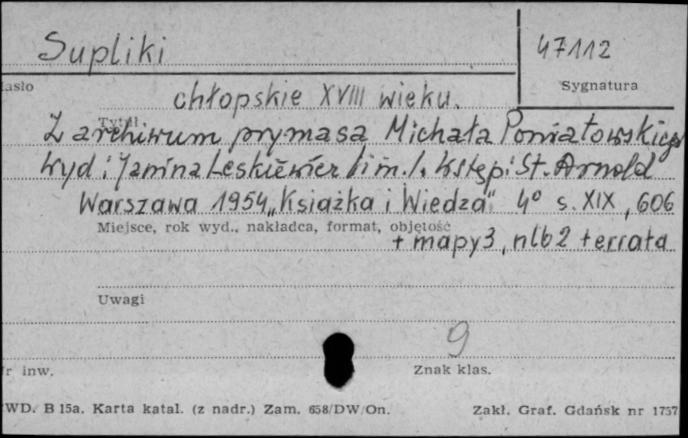 Supliki
47112
asło
Sygnatura
chłopskie XVIII wieku.
Tytuł
Z archiwum prymasa Michała Poniatowskiego
Wyd: Janina Leskiewicz i in. Wstęp: St. Arnold
Warszawa 1954 „Książka i Wiedza" 4° s. XIX, 606
Miejsce, rok wyd., nakładca, format, objętość
+ mapy 3, nlb 2 + errata
Uwagi
9
r inw.
Znak klas.
WD. B 15a. Karta katal. (z nadr.) Zam. 658/DW/On.
Zakł. Graf. Gdańsk nr 1757